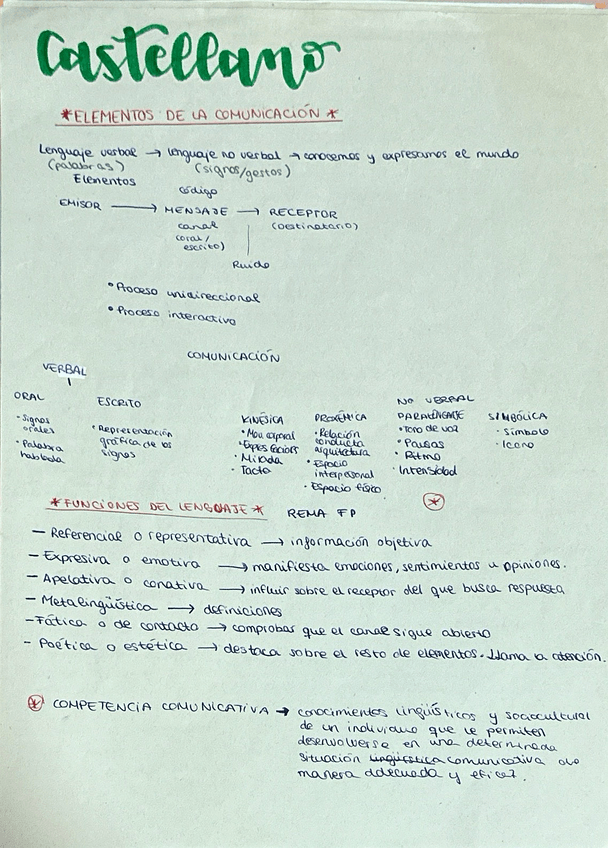 Castellano
*ELEMENTOS DE LA COMUNICACIÓN*
Lenguaje verbal → lenguaje no verbal → conocemos y expresamos el mundo
(palabras) (signos/gestos)
Elementos
código
EMISOR → MENSAJE → RECEPTOR
canal (Destinatario)
(oral/
escrito)
Ruido
• Proceso unidireccional
• Proceso interactivo
COMUNICACIÓN
VERBAL
ORAL
• Signos
orales
• Palabra
hablada
ESCRITO
• Representación
gráfica de los
signos
NO VERBAL
KINÉSICA
• Mov corporal
• Expres faciales
• Mirada
• Tacto
PROXÉMICA
• Relación
conducta
arquitectura
• Espacio
interpersonal
• Espacio físico
PARALENGUAJE
• Tono de voz
• Pausas
• Ritmo
• Intensidad
SIMBÓLICA
• Símbolo
• Icono
*
*FUNCIONES DEL LENGUAJE* REMA FP
- Referencial o representativa → información objetiva
- Expresiva o emotiva → manifiesta emociones, sentimientos u opiniones.
- Apelativa o conativa → influir sobre el receptor del que busca respuesta
- Metalingüística → definiciones
- Fática o de contacto → comprobar que el canal sigue abierto
- Poética o estética → destaca sobre el resto de elementos. Llama la atención.
* COMPETENCIA COMUNICATIVA → conocimientos lingüísticos y sociocultural
de un individuo que le permiten
desenvolverse en una determinada
situación lingüística comunicativa de
manera adecuada y eficaz.